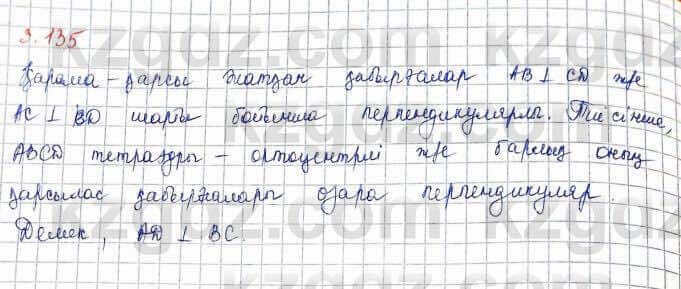 3.135
Қарама-қарсы жатқан қабырғалар AB ⊥ CD және
AC ⊥ BD шарты бойынша перпендикулярлы. Тиісінше,
ABCD тетраэдры – ортоцентрлі және барлық оның
қарсылас қабырғалары өзара перпендикуляр.
Демек, AD ⊥ BC.